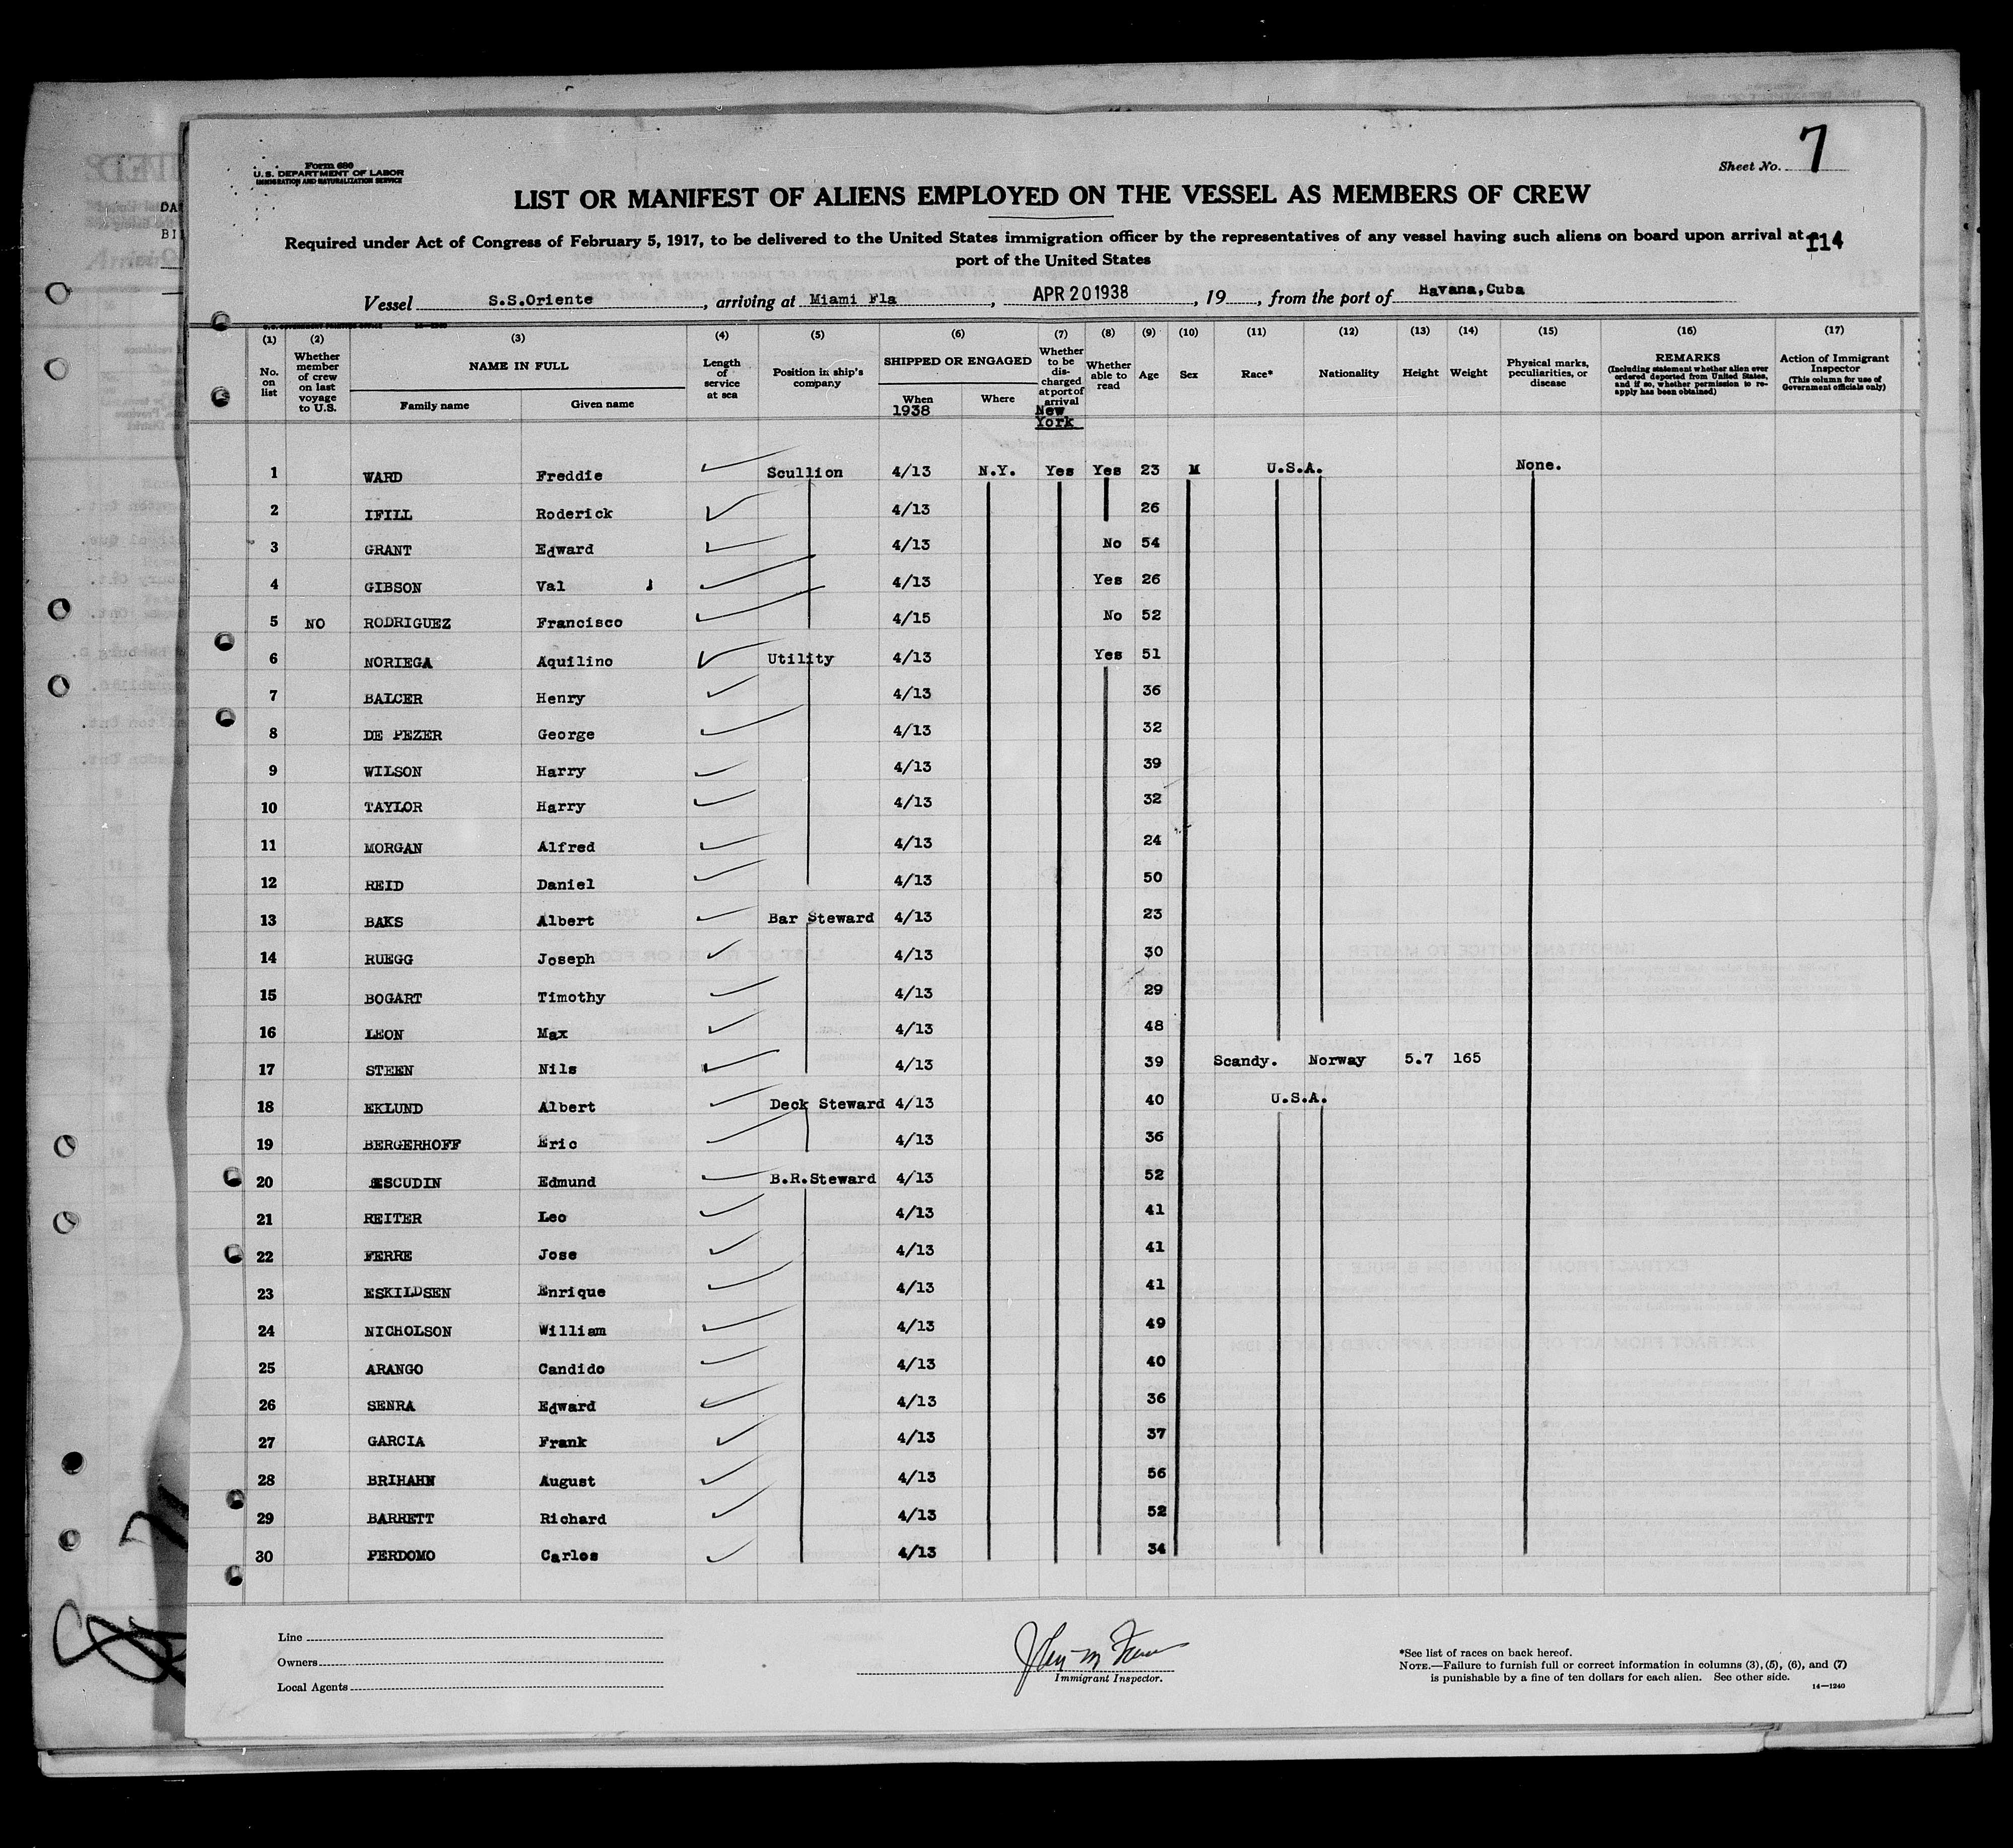 Form 680
U. S. DEPARTMENT OF LABOR
IMMIGRATION AND NATURALIZATION SERVICE
Sheet No. 7
LIST OR MANIFEST OF ALIENS EMPLOYED ON THE VESSEL AS MEMBERS OF CREW
Required under Act of Congress of February 5, 1917, to be delivered to the United States immigration officer by the representatives of any vessel having such aliens on board upon arrival at
port of the United States
114
Vessel S.S.Oriente, arriving at Miami Fla, APR 20 1938, 19, from the port of Havana,Cuba
(1) No. on list
(2) Whether member of crew on last voyage to U.S.
(3) NAME IN FULL Family name Given name
(4) Length of service at sea
(5) Position in ship's company
(6) SHIPPED OR ENGAGED When 1938 Where
(7) Whether to be discharged at port of arrival New York
(8) Whether able to read
(9) Age
(10) Sex
(11) Race*
(12) Nationality
(13) Height
(14) Weight
(15) Physical marks, peculiarities, or disease
(16) REMARKS (Including statement whether alien ever ordered deported from United States, and if so, whether permission to reapply has been obtained)
(17) Action of Immigrant Inspector (This column for use of Government officials only)
1 WARD Freddie Scullion 4/13 N.Y. Yes Yes 23 M U.S.A. None.
2 IFILL Roderick 4/13 26
3 GRANT Edward 4/13 No 54
4 GIBSON Val 4/13 Yes 26
5 NO RODRIGUEZ Francisco 4/15 No 52
6 NORIEGA Aquilino Utility 4/13 Yes 51
7 BALCER Henry 4/13 36
8 DE PEZER George 4/13 32
9 WILSON Harry 4/13 39
10 TAYLOR Harry 4/13 32
11 MORGAN Alfred 4/13 24
12 REID Daniel 4/13 50
13 BAKS Albert Bar Steward 4/13 23
14 RUEGG Joseph 4/13 30
15 BOGART Timothy 4/13 29
16 LEON Max 4/13 48
17 STEEN Nils 4/13 39 Scandy. Norway 5.7 165
18 EKLUND Albert Deck Steward 4/13 40 U.S.A.
19 BERGERHOFF Eric 4/13 36
20 ESCUDIN Edmund B.R.Steward 4/13 52
21 REITER Leo 4/13 41
22 FERRE Jose 4/13 41
23 ESKILDSEN Enrique 4/13 41
24 NICHOLSON William 4/13 49
25 ARANGO Candido 4/13 40
26 SENRA Edward 4/13 36
27 GARCIA Frank 4/13 37
28 BRIHAHN August 4/13 56
29 BARRETT Richard 4/13 52
30 PERDOMO Carlos 4/13 34
Line
Owners
Local Agents
Immigrant Inspector.
*See list of races on back hereof.
NOTE.—Failure to furnish full or correct information in columns (3), (5), (6), and (7)
is punishable by a fine of ten dollars for each alien. See other side.
14—1240